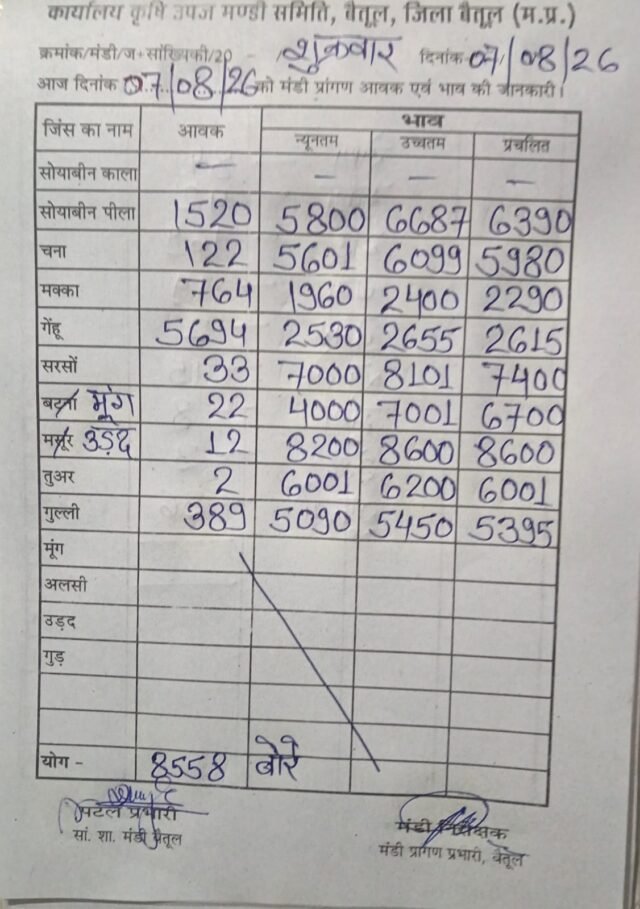 कार्यालय कृषि उपज मण्डी समिति, बैतूल, जिला बैतूल (म.प्र.)
क्रमांक/मंडी/ज+सांख्यिकी/20 - शुक्रवार दिनांक 07/08/26
आज दिनांक 07/08/26 को मंडी प्रांगण आवक एवं भाव की जानकारी।
जिंस का नाम आवक भाव
न्यूनतम उच्चतम प्रचलित
सोयाबीन काला — — — —
सोयाबीन पीला 1520 5800 6687 6390
चना 122 5601 6099 5980
मक्का 764 1960 2400 2290
गेंहू 5694 2530 2655 2615
सरसों 33 7000 8101 7400
बटना मूंग 22 4000 7001 6700
मसूर उड़द 12 8200 8600 8600
तुअर 2 6001 6200 6001
गुल्ली 389 5090 5450 5395
मूंग
अलसी
उड़द
गुड़
योग - 8558 बोरे
पटेल प्रभारी
सां. शा. मंडी बैतूल
मंडी निरीक्षक
मंडी प्रांगण प्रभारी, बैतूल